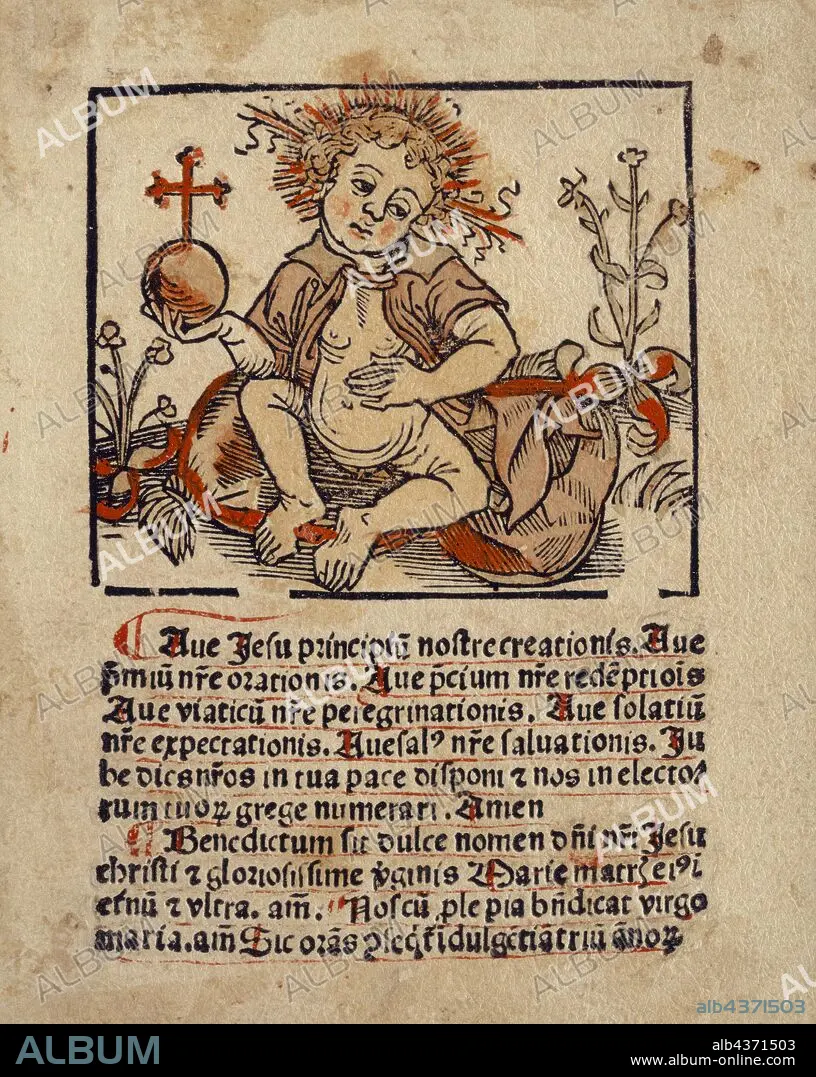 Aue Jesu principiū nostre creationis. Aue
p̄miū nr̄e orationis. Aue p̄cium nr̄e redēptiōis
Aue viaticū nr̄e peregrinationis. Aue solatiū
nr̄e expectationis. Aue salꝰ nr̄e saluationis. Ju
be dies nr̄os in tua pace disponi ⁊ nos in electo⸗
rum tuoꝝ grege numerari. Amen
Benedictum sit dulce nomen dn̄i nr̄i Jesu
christi ⁊ gloriosissime v̄ginis Marie matrꝭ eiꝰ ī
et̄nū ⁊ vltra. am̄. Nos cū ꝓle pia bn̄dicat virgo
maria. am̄ Sic orās
ALBUM
alb4371503
ALBUM
alb4371503
www.album-online.com